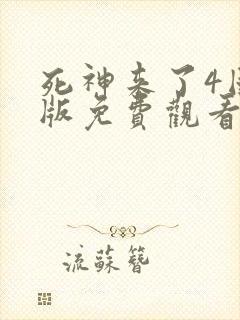 死神来了4
版免費觀看
流蘇簪